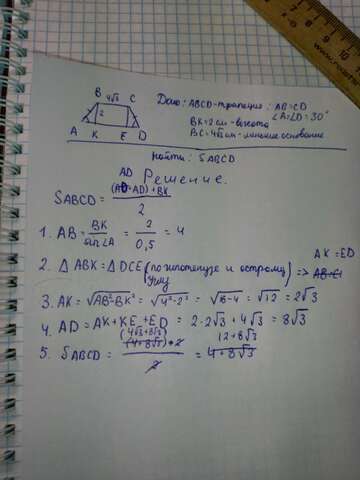 B 4√3 C
2
A K E D
Дано: ABCD-трапеция: AB=CD
∠A=∠D=30°
BK=2см-высота
BC=4√3см-меньшее основание
Найти: SABCD
AD
Решение.
SABCD = (AD+AD)·BK / 2
1. AB = BK / sin∠A = 2 / 0,5 = 4
2. △ABK=△DCE (по гипотенузе и острому углу) => AB=CD
AK=ED
3. AK = √AB²-BK² = √4²-2² = √16-4 = √12 = 2√3
4. AD = AK+KE+ED = 2·2√3+4√3 = 8√3
5. SABCD = (4√3+8√3) (4+8√3)·2 / 2 = 12+8√3 4+8√3